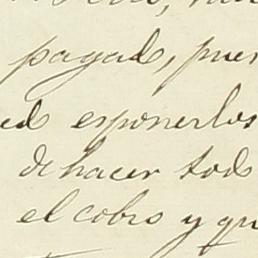 pagado, pues
ed esponerlos
de hacer tod
el cobro y qu